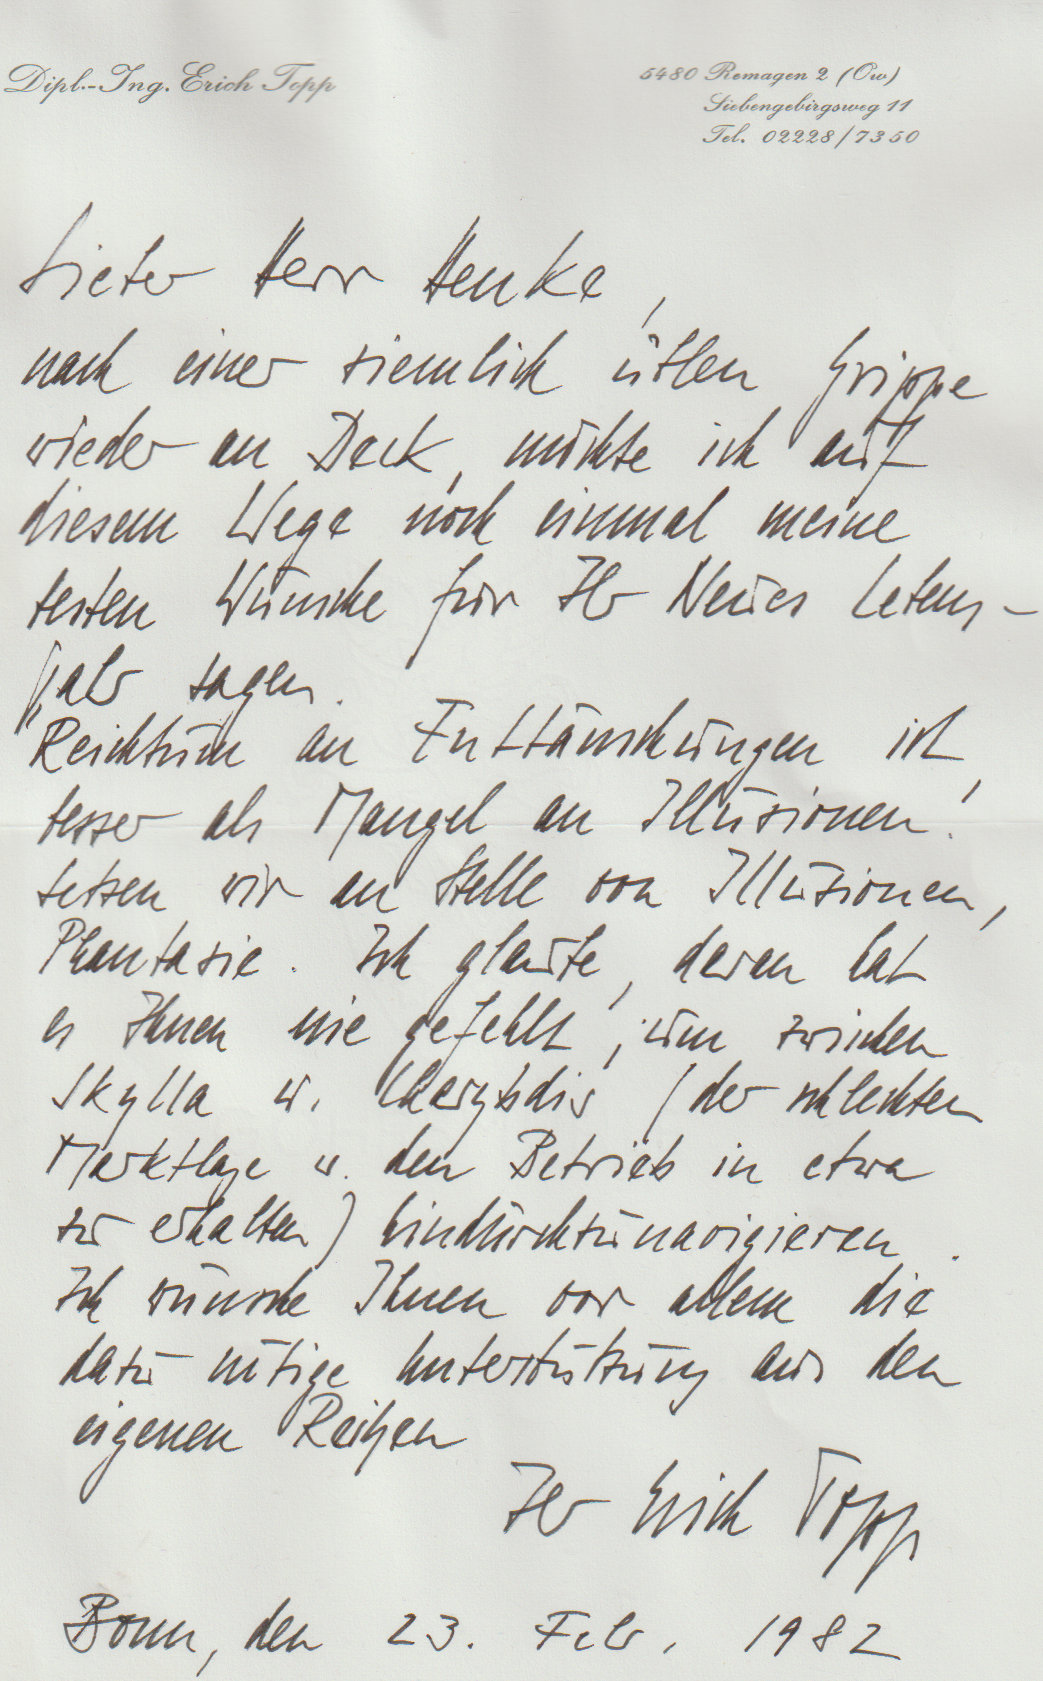 Dipl.-Ing. Erich Topp
5480 Remagen 2 (Ow)
Siebengebirgsweg 11
Tel. 02228/7350
Lieber Herr Henke,
nach einer ziemlich üblen Grippe
wieder an Deck, möchte ich auf
diesem Wege noch einmal meine
besten Wünsche für Ihr Neues Lebens-
jahr sagen.
Reichtum an Enttäuschungen ist,
besser als Mangel an Illusionen!
Setzen wir an Stelle von Illusionen,
Phantasie. Ich glaube, daran hat
es Ihnen nie gefehlt, um zwischen
Skylla u. Charybdis (der schlechten
Marktlage u. den Betrieb in etwa
zu erhalten) hindurchzunavigieren.
Ich wünsche Ihnen vor allem die
dazu nötige Unterstützung aus den
eigenen Reihen
Ihr Erich Topp
Bonn, den 23. Feb. 1982